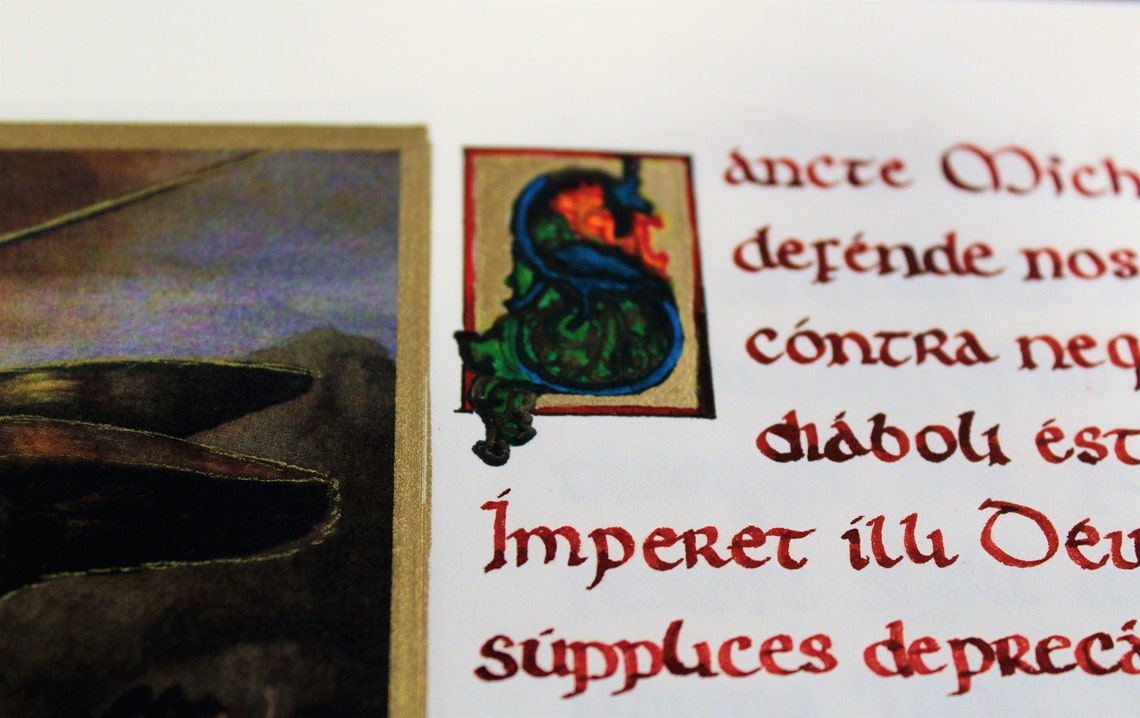 Sancte Mich
defénde nos
cóntra neq
diáboli ést
Ímperet illi Déu
súpplices deprecá